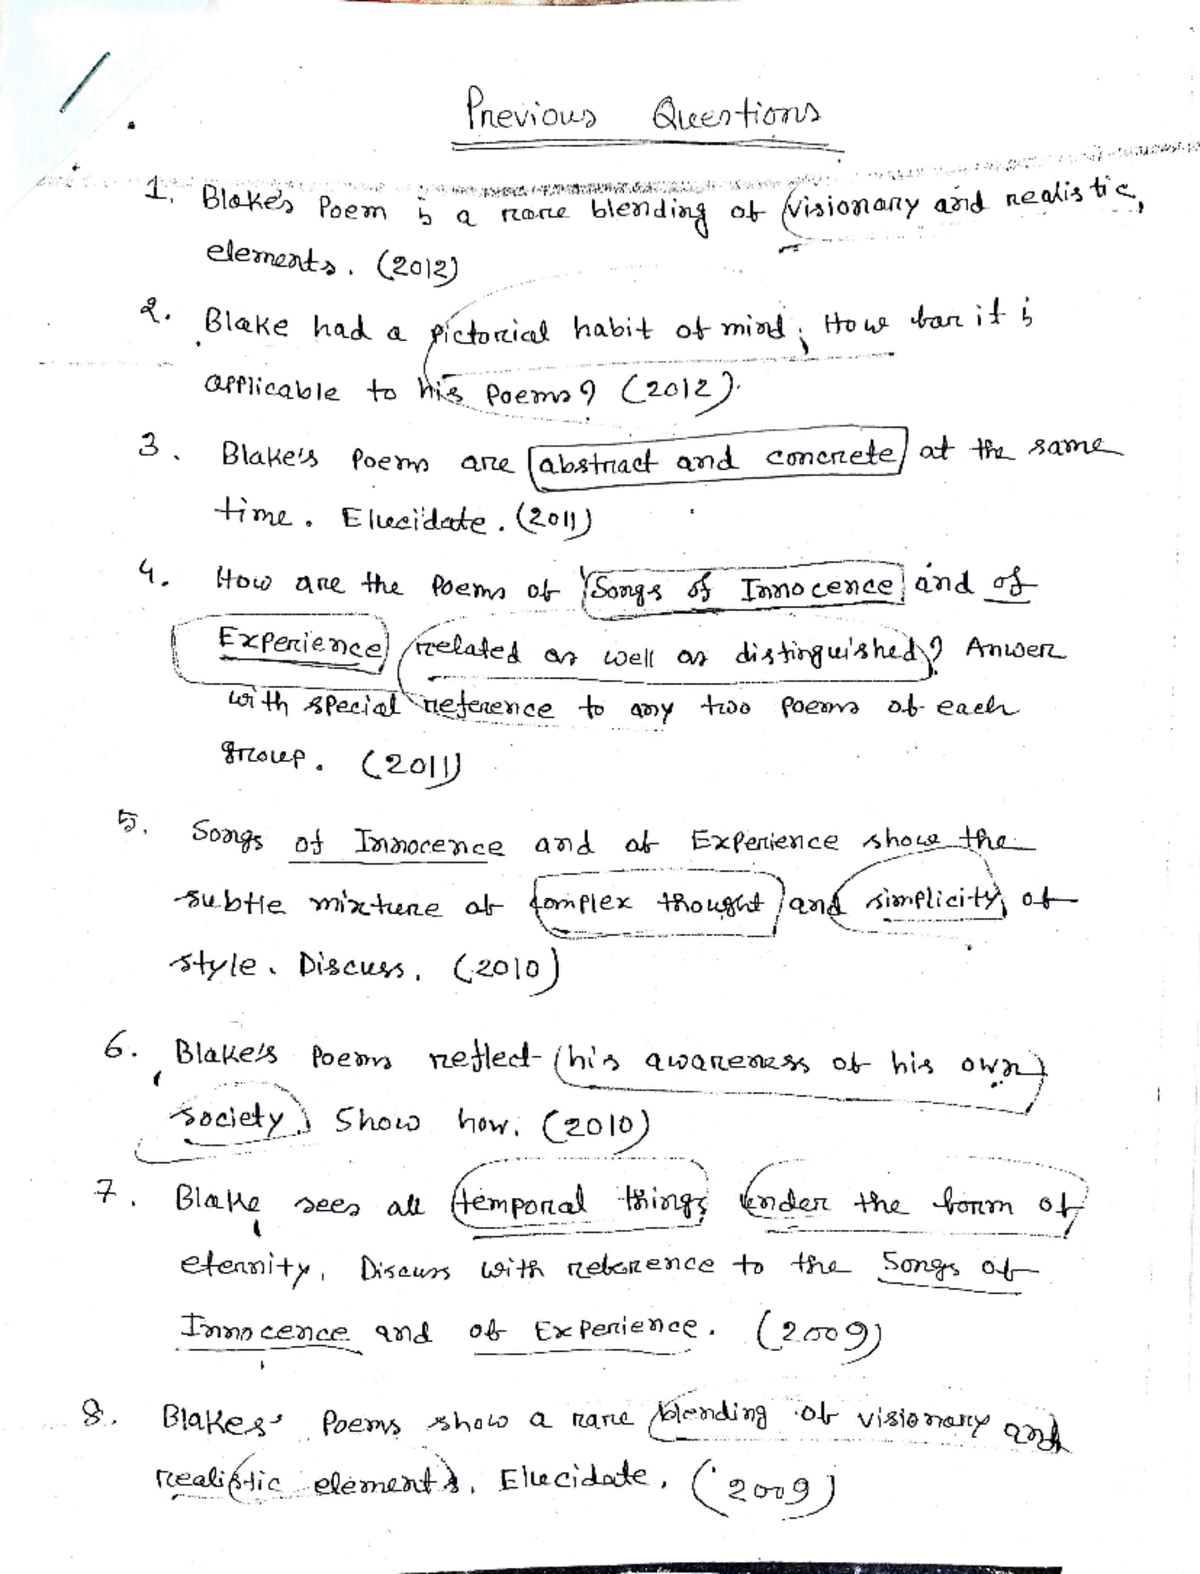 Previous Questions
1. Blake's Poem is a rare blending of visionary and realistic,
elements. (2012)
2. Blake had a pictorial habit of mind; How far it is
applicable to his Poems? (2012).
3. Blake's Poems are abstract and concrete at the same
time. Elucidate. (2011)
4. How are the Poems of Songs of Innocence and of
Experience related as well as distinguished? Anwer
with special reference to any two poems of each
group. (2011)
5. Songs of Innocence and of Experience show the
subtle mixture of complex thought and simplicity of
style. Discuss. (2010)
6. Blake's Poems reflect his awareness of his own
society. Show how. (2010)
7. Blake sees all temporal things under the form of
eternity. Discuss with reference to the Songs of
Innocence and of Experience. (2009)
8. Blakes' Poems show a rare blending of visionary and
realistic elements. Elucidate. (2009)